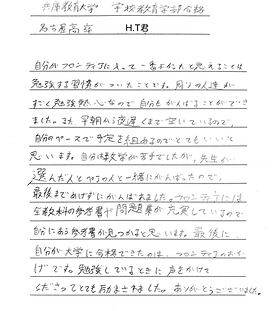 兵庫教育大学 学校教育学部合格
名古屋高卒 H.T君
自分がフロンティアに入って一番よかったと思えることは
勉強する習慣がついたことです。周りの人達が
すごく勉強熱心なので自分もがんばることができ
ました。また早朝から夜遅くまで空いているので、
自分のペースで予定を組めるのでとてもいいと
思います。自分は英文学が苦手でしたが、先生が
選んだ人とやりのと一緒にがんばったので、
最後まであげずにがんばれました。フロンティアには
全教科の参考書や問題集が充実しているので
自分にあう参考書が見つかると思います。最後に
自分が大学に合格できたのは、フロンティアのおか
げです。勉強しているときに声をかけて
くださってとても励まされました。ありがとうございました。